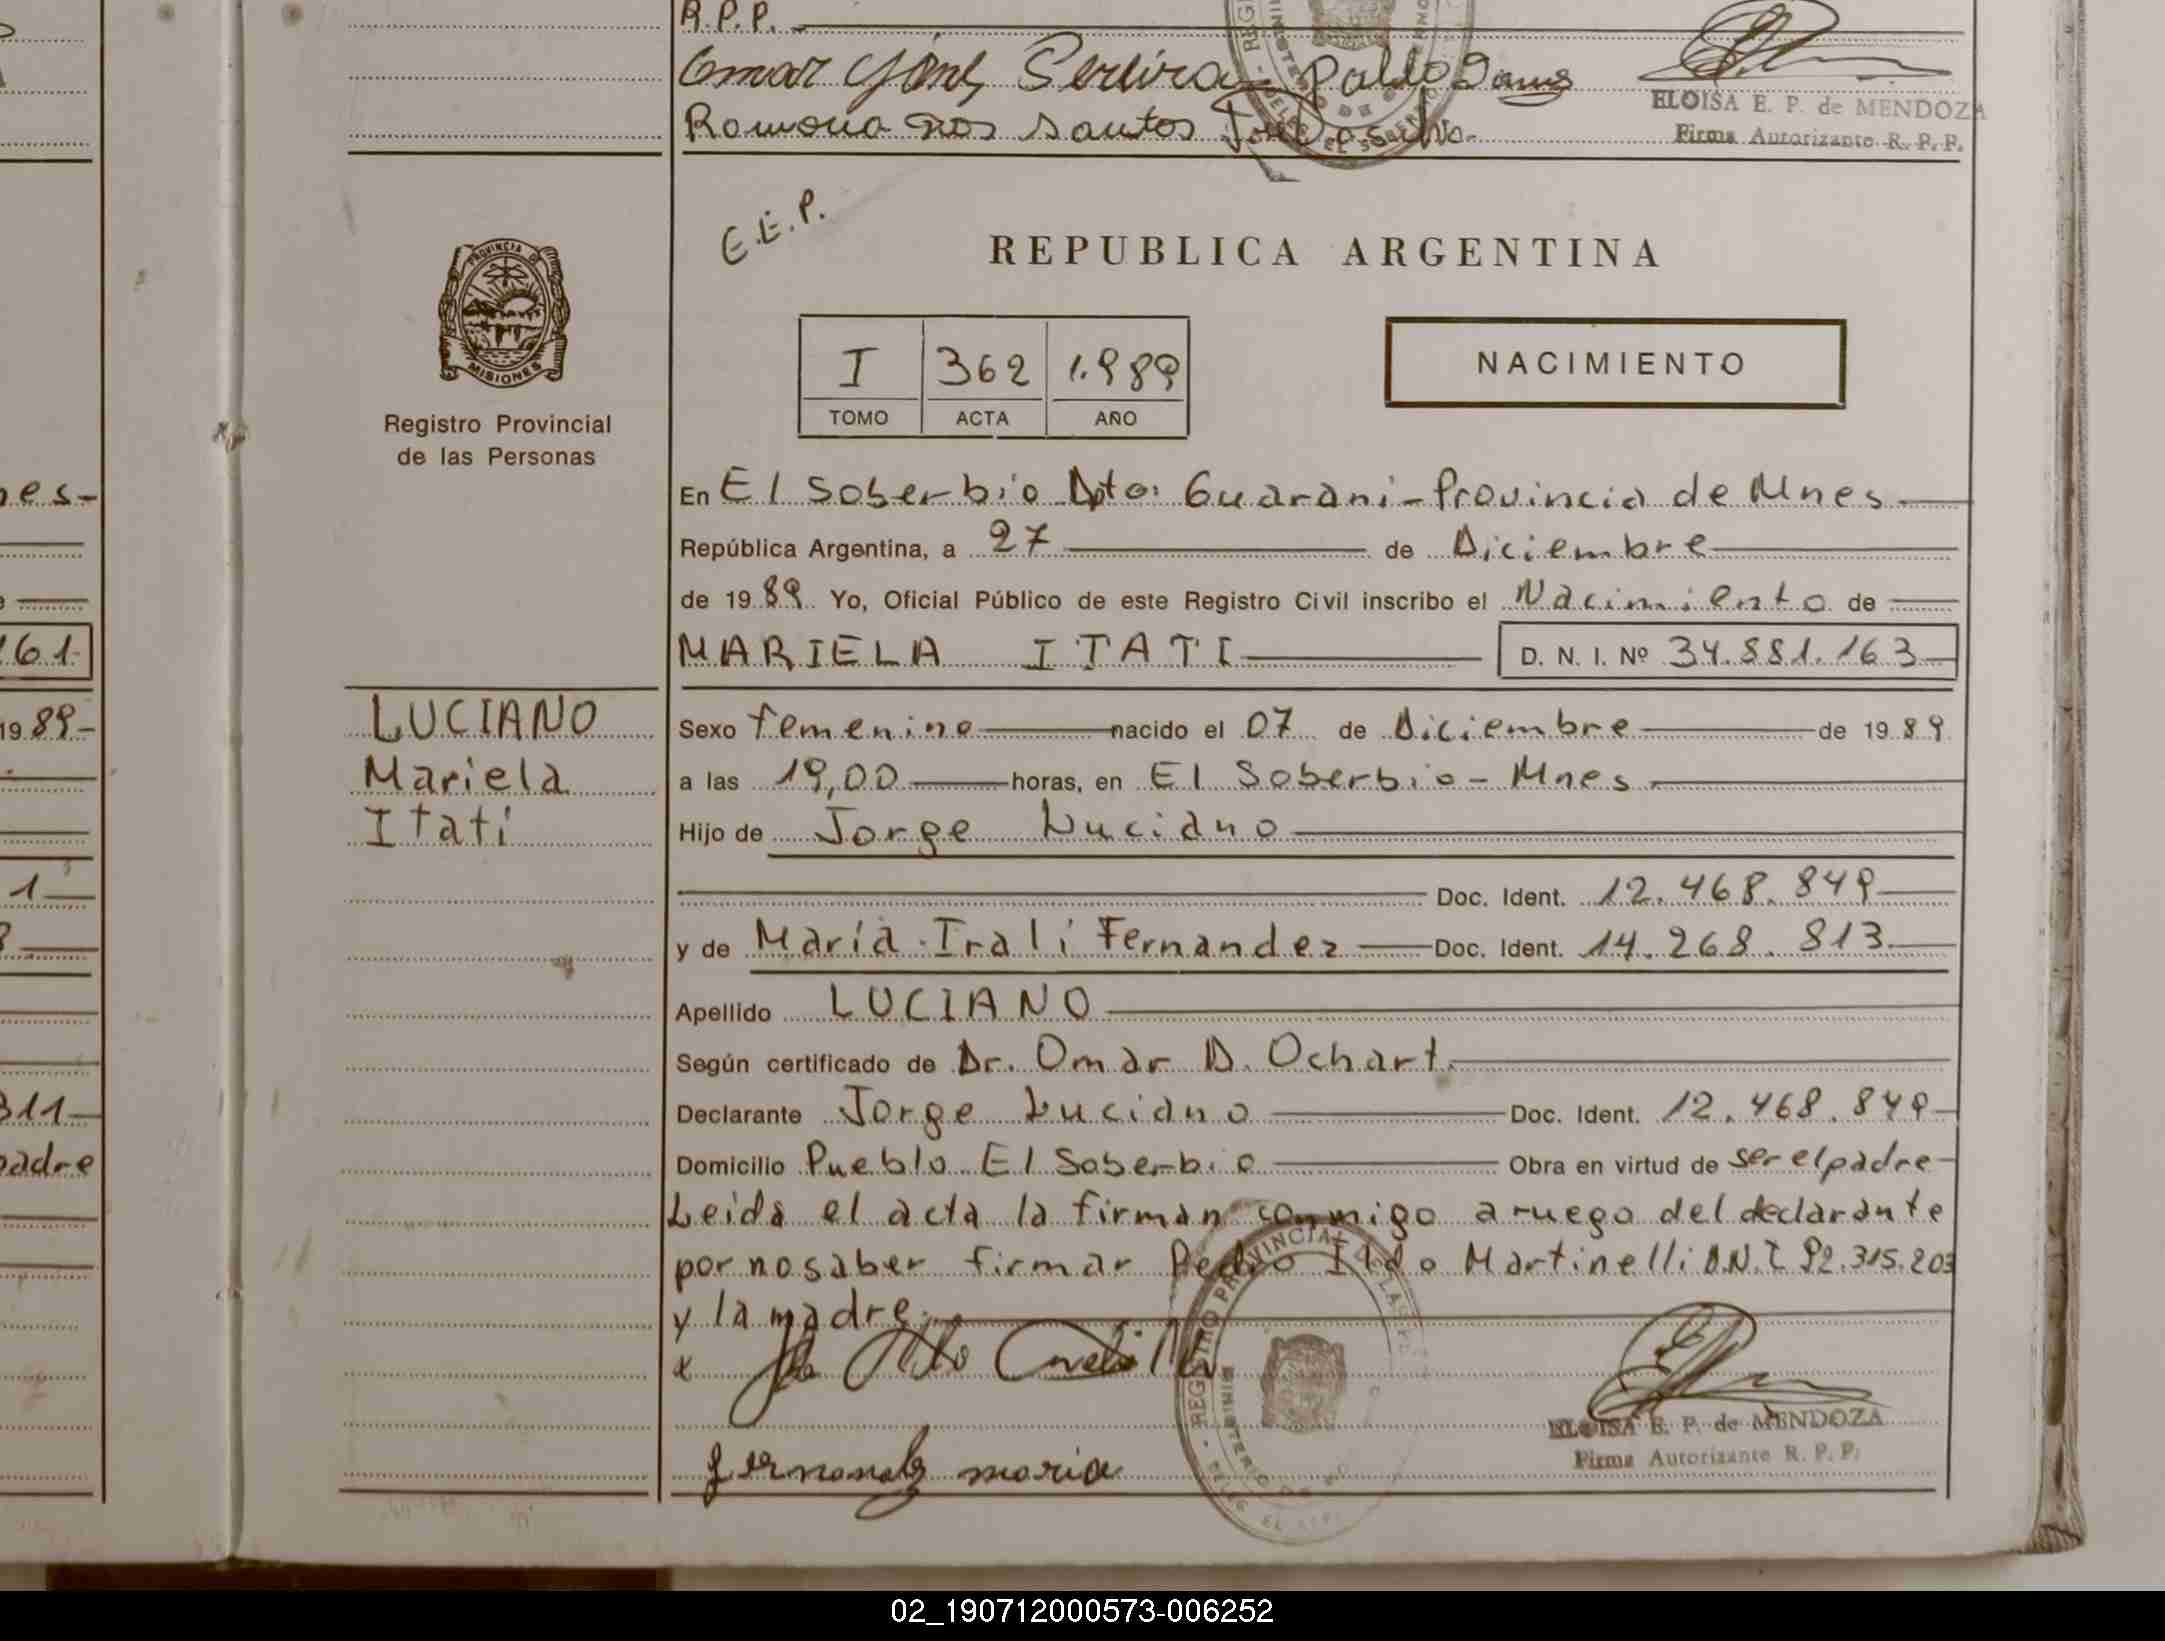 R.P.P.
Omar
Pablo
Ramona dos santos
ELOISA E. P. de MENDOZA
Firma Autorizante R. P. P.
E.E.P.
REPUBLICA ARGENTINA
PROVINCIA DE
MISIONES
I 362 1.989
TOMO ACTA AÑO
NACIMIENTO
Registro Provincial
de las Personas
nes-
En El Soberbio Dpto: Guarani-Provincia de Mnes
República Argentina, a 27 de Diciembre
de 1989 Yo, Oficial Público de este Registro Civil inscribo el Nacimiento de
161
MARIELA ITATI D. N. I. Nº 34.881.163
1989-
LUCIANO
Mariela
Itatí
Sexo femenino nacido el 07 de Diciembre de 1989
a las 19,00 horas, en El Soberbio - Mnes
Hijo de Jorge Luciano
1
Doc. Ident. 12.468.849
y de María Irali Fernandez Doc. Ident. 14.268.813
Apellido LUCIANO
Según certificado de Dr. Omar D. Ochart.
311
Declarante Jorge Luciano Doc. Ident. 12.468.849
padre
Domicilio Pueblo El Soberbio Obra en virtud de ser el padre
Leida el acta la firman conmigo a ruego del declarante
por no saber firmar Pedro Ildo Martinelli D.N.I 92.315.203
y la madre.
x
fernandez maria
REGISTRO PROVINCIAL DE LAS
ELOISA E. P. de MENDOZA
Firma Autorizante R. P. P.
02_190712000573-006252